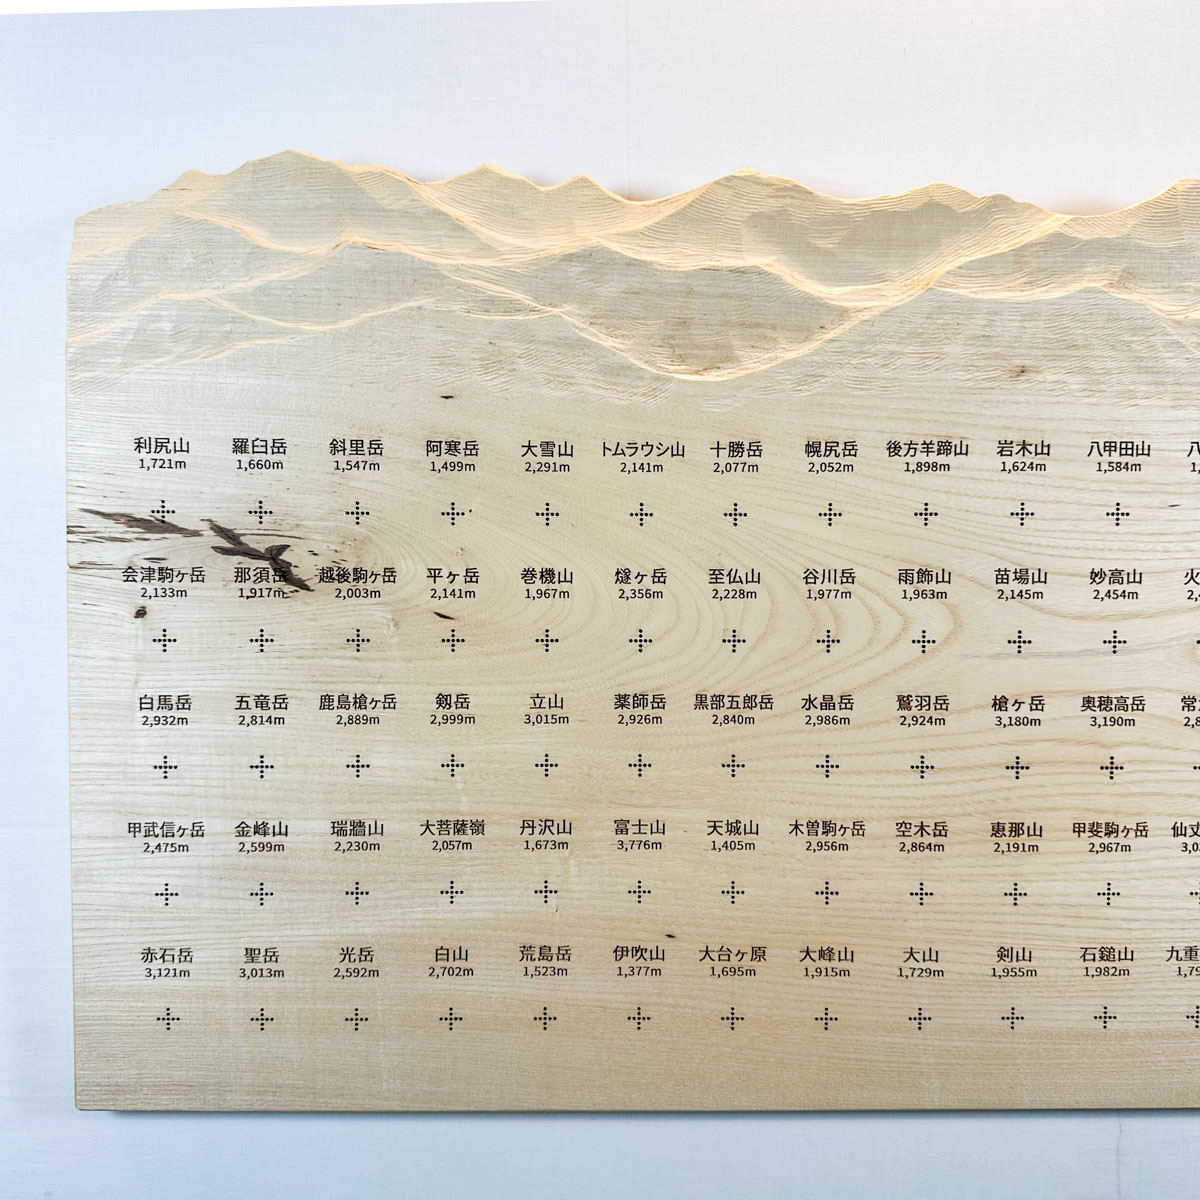 利尻山 羅臼岳 斜里岳 阿寒岳 大雪山 トムラウシ山 十勝岳 幌尻岳 後方羊蹄山 岩木山 八甲田山 八
1,721m 1,660m 1,547m 1,499m 2,291m 2,141m 2,077m 2,052m 1,898m 1,624m 1,584m 1,
会津駒ヶ岳 那須岳 越後駒ヶ岳 平ヶ岳 巻機山 燧ヶ岳 至仏山 谷川岳 雨飾山 苗場山 妙高山 火
2,133m 1,917m 2,003m 2,141m 1,967m 2,356m 2,228m 1,977m 1,963m 2,145m 2,454m 2,4
白馬岳 五竜岳 鹿島槍ヶ岳 剱岳 立山 薬師岳 黒部五郎岳 水晶岳 鷲羽岳 槍ヶ岳 奥穂高岳 常
2,932m 2,814m 2,889m 2,999m 3,015m 2,926m 2,840m 2,986m 2,924m 3,180m 3,190m 2,8
甲武信ヶ岳 金峰山 瑞牆山 大菩薩嶺 丹沢山 富士山 天城山 木曽駒ヶ岳 空木岳 恵那山 甲斐駒ヶ岳 仙丈
2,475m 2,599m 2,230m 2,057m 1,673m 3,776m 1,405m 2,956m 2,864m 2,191m 2,967m 3,03
赤石岳 聖岳 光岳 白山 荒島岳 伊吹山 大台ヶ原 大峰山 大山 剣山 石鎚山 九重
3,121m 3,013m 2,592m 2,702m 1,523m 1,377m 1,695m 1,915m 1,729m 1,955m 1,982m 1,79